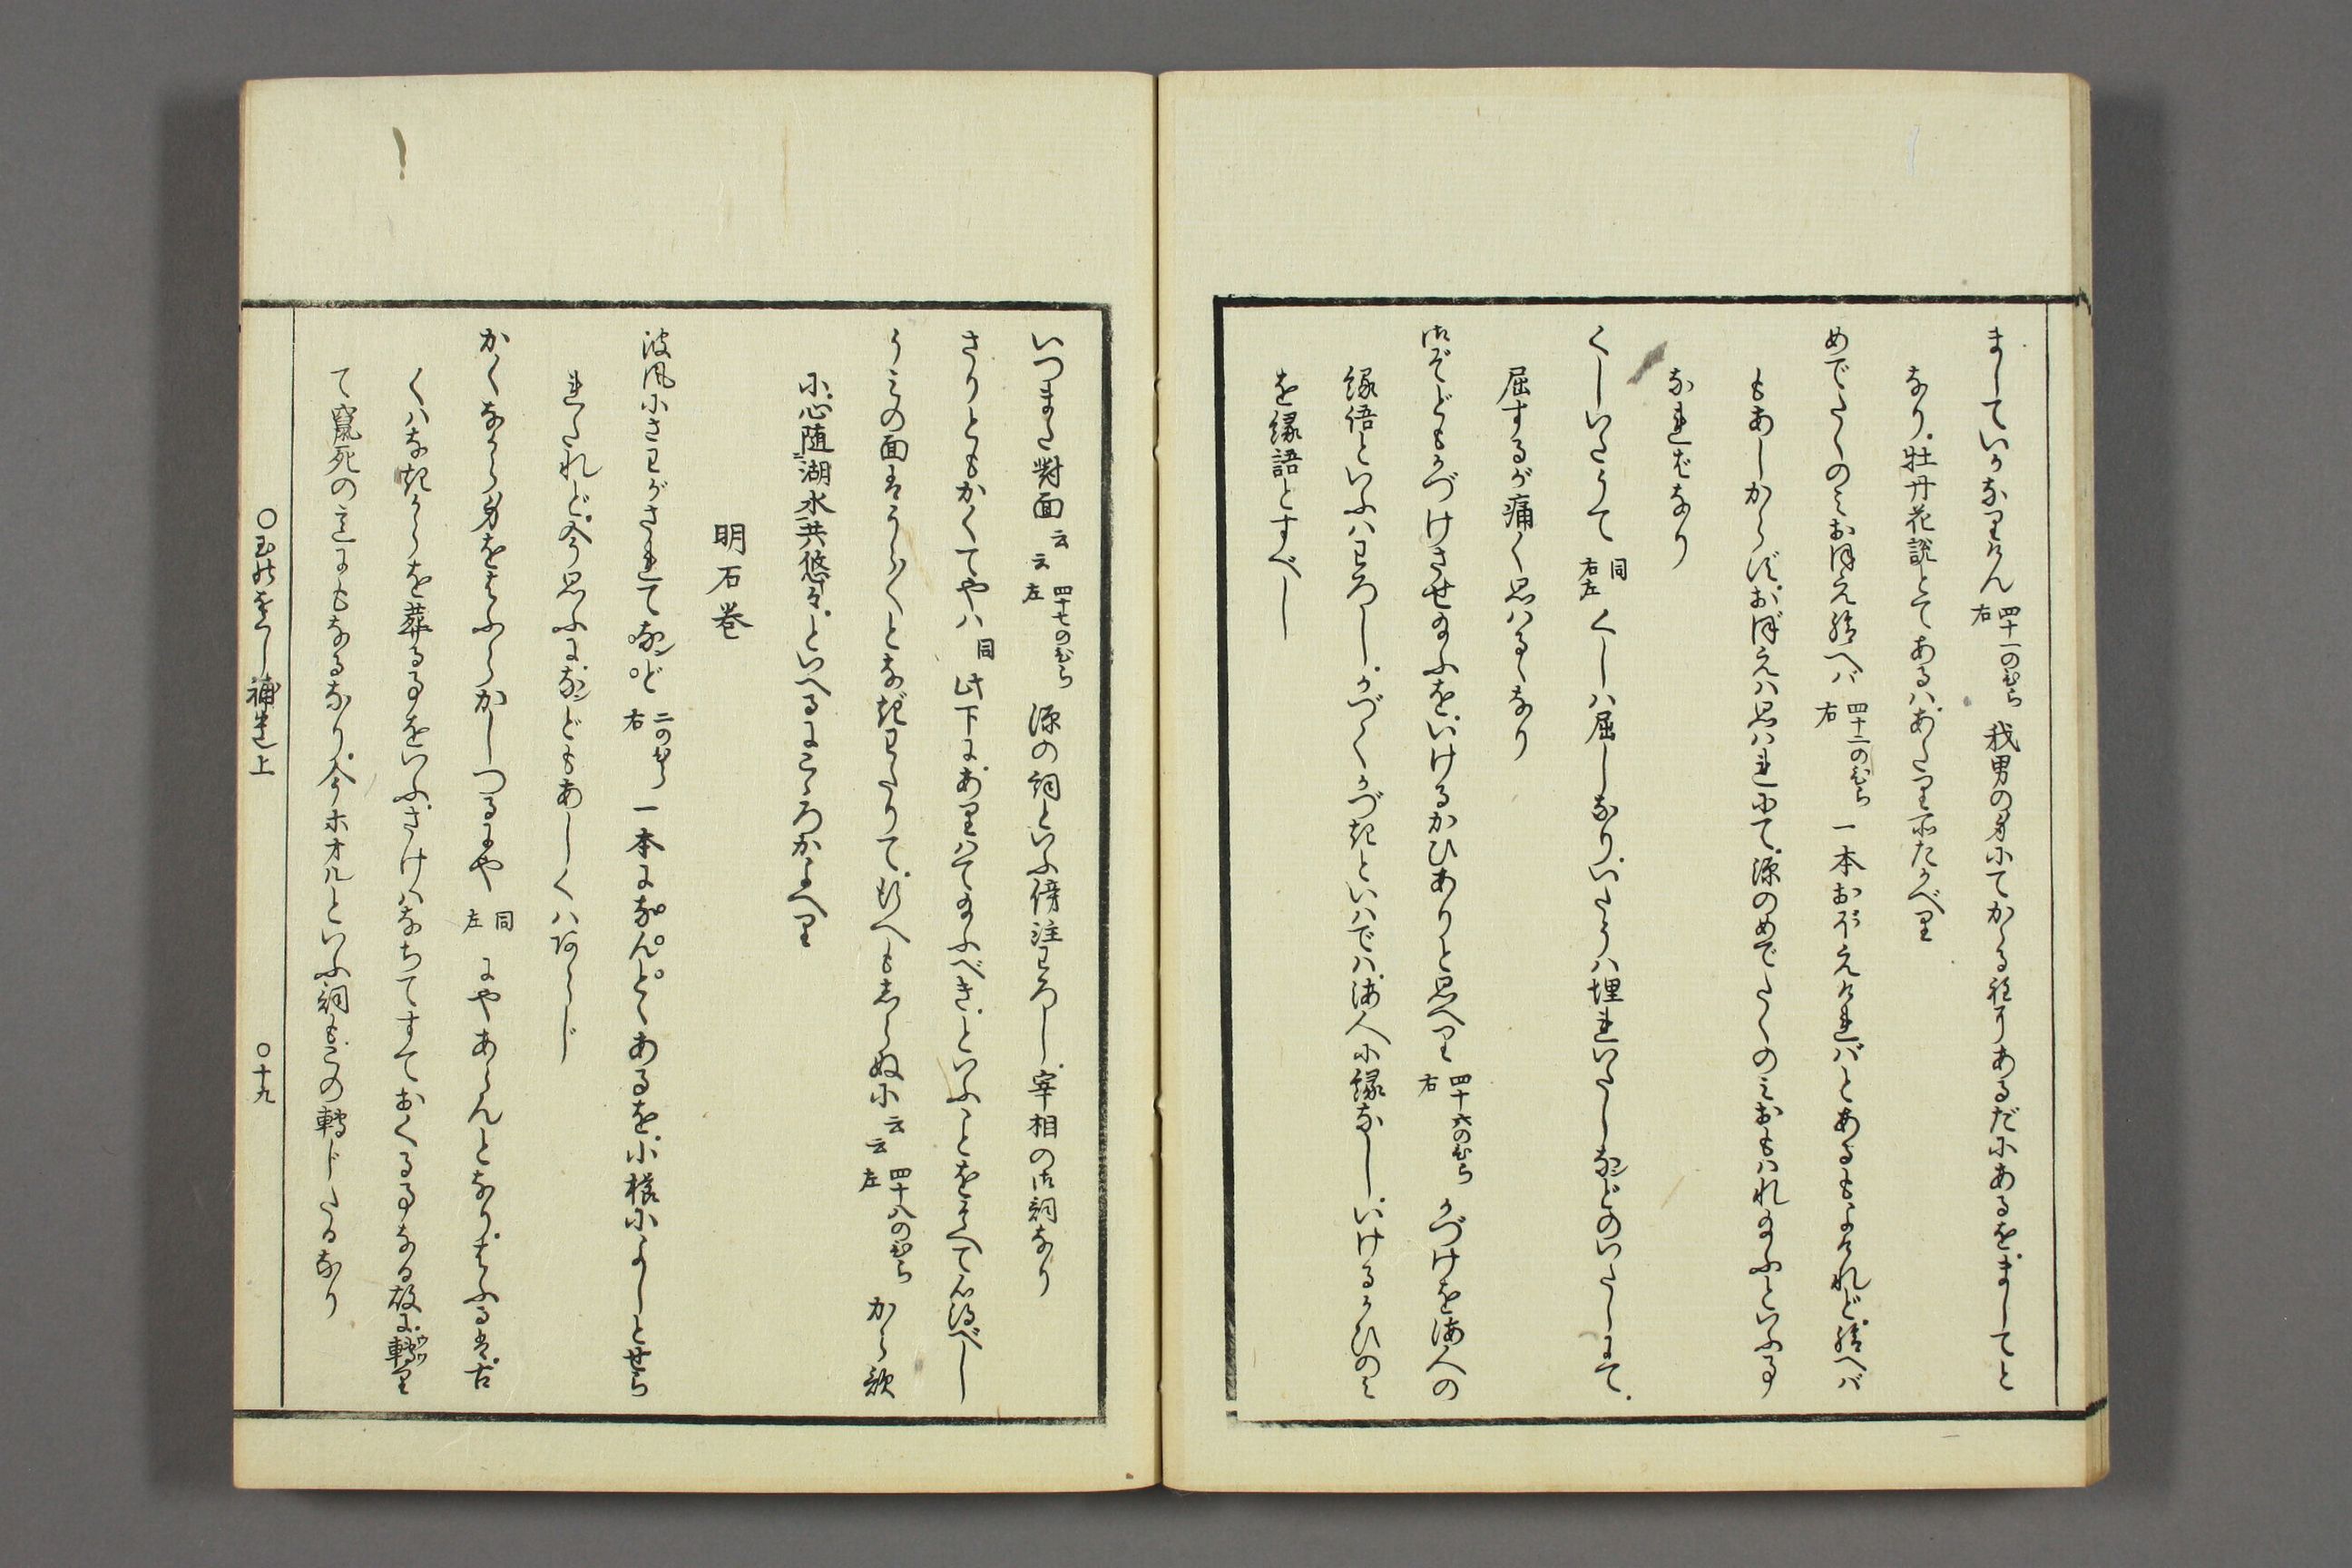 ましていかなりけん 四十一のひら右 我男の身にてかゝる程にあるだにあるを、ましてと
なり、牡丹花説とてあるは、あたり所たがへり
めでたくのみおぼえ給へば 四十二のひら右 一本おぼえければとあるもよけれど、給へば
もあしからず、おぼえは思はれにて、源のめでたくのみおもはれ給ふといふ事
なればなり
くしいたうて 同右左 くしは屈しなり、いたうは埋れいたしなどのいたしにて、
屈するが痛く思はるゝなり
御ぞどもかづけさせ給ふを、いけるかひありと思へり 四十六のひら右 かづけを海人の
縁語といふはわろし、かづくかづきといはでは、海人に縁なし、いけるかひのみ
を縁語とすべし
いつまた對面云云 四十七のひら左 源の詞といふ傍注わろし、宰相の御詞なり
さりともかくてやは 同 此下に、ありはて給ふべき、といふことをそへて心得べし
うみの面はうら〳〵となぎわたりて、むへもしらぬに云云 四十八のひら左 から歌
に、心随湖水共悠々、といへるにこゝろかよへり
明石巻
波風にさわがされてなンど 二のひら右 一本になんとゝあるを、小櫛によしとせら
れたれど、今思ふになンどもあしくはあらじ
かくながら身をはふらかしつるにや 同左 にやあらんとなり、はふるは、古
くはなきからを葬る事をいふ、さけはなちてすておくる事なる故に、轉り
て竄死の意にもなるなり、今ホオルといふ詞も、この轉じたるなり
○玉のをくし補遺上 ○十九